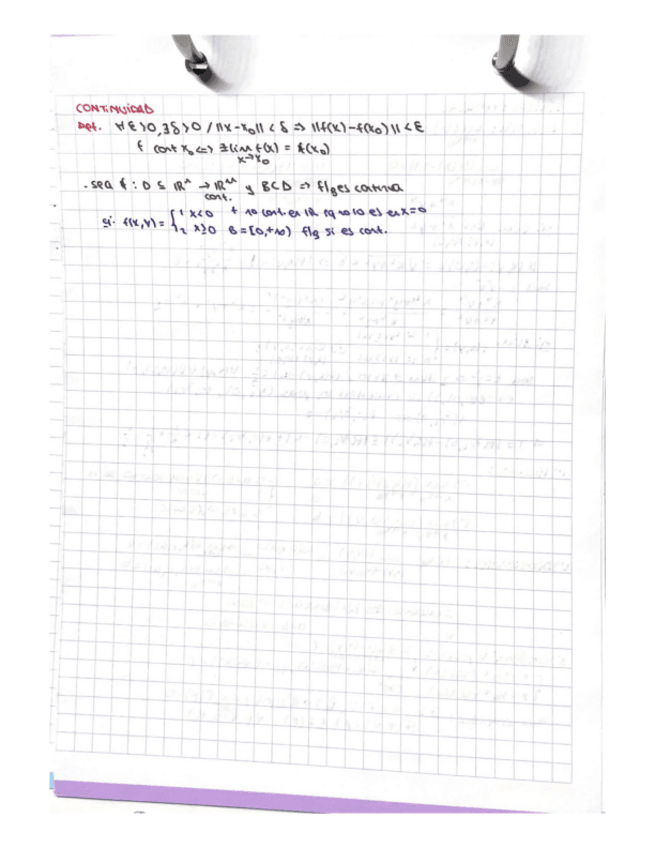 CONTINUIDAD
Def. ∀ε>0, ∃δ>0 / ||x-x₀|| < δ => ||f(x)-f(x₀)|| < ε
f cont x₀ <=> ∃ lim f(x) = f(x₀)
x→x₀
. sea f : D ⊆ ℝⁿ → ℝᵐ y B⊂D => f|B es continua
cont.
si. f(x,y) = { 1 x<0 f no cont. en ℝ pq no lo es en x=0
2 x≥0 B = [0,+∞) f|B si es cont.